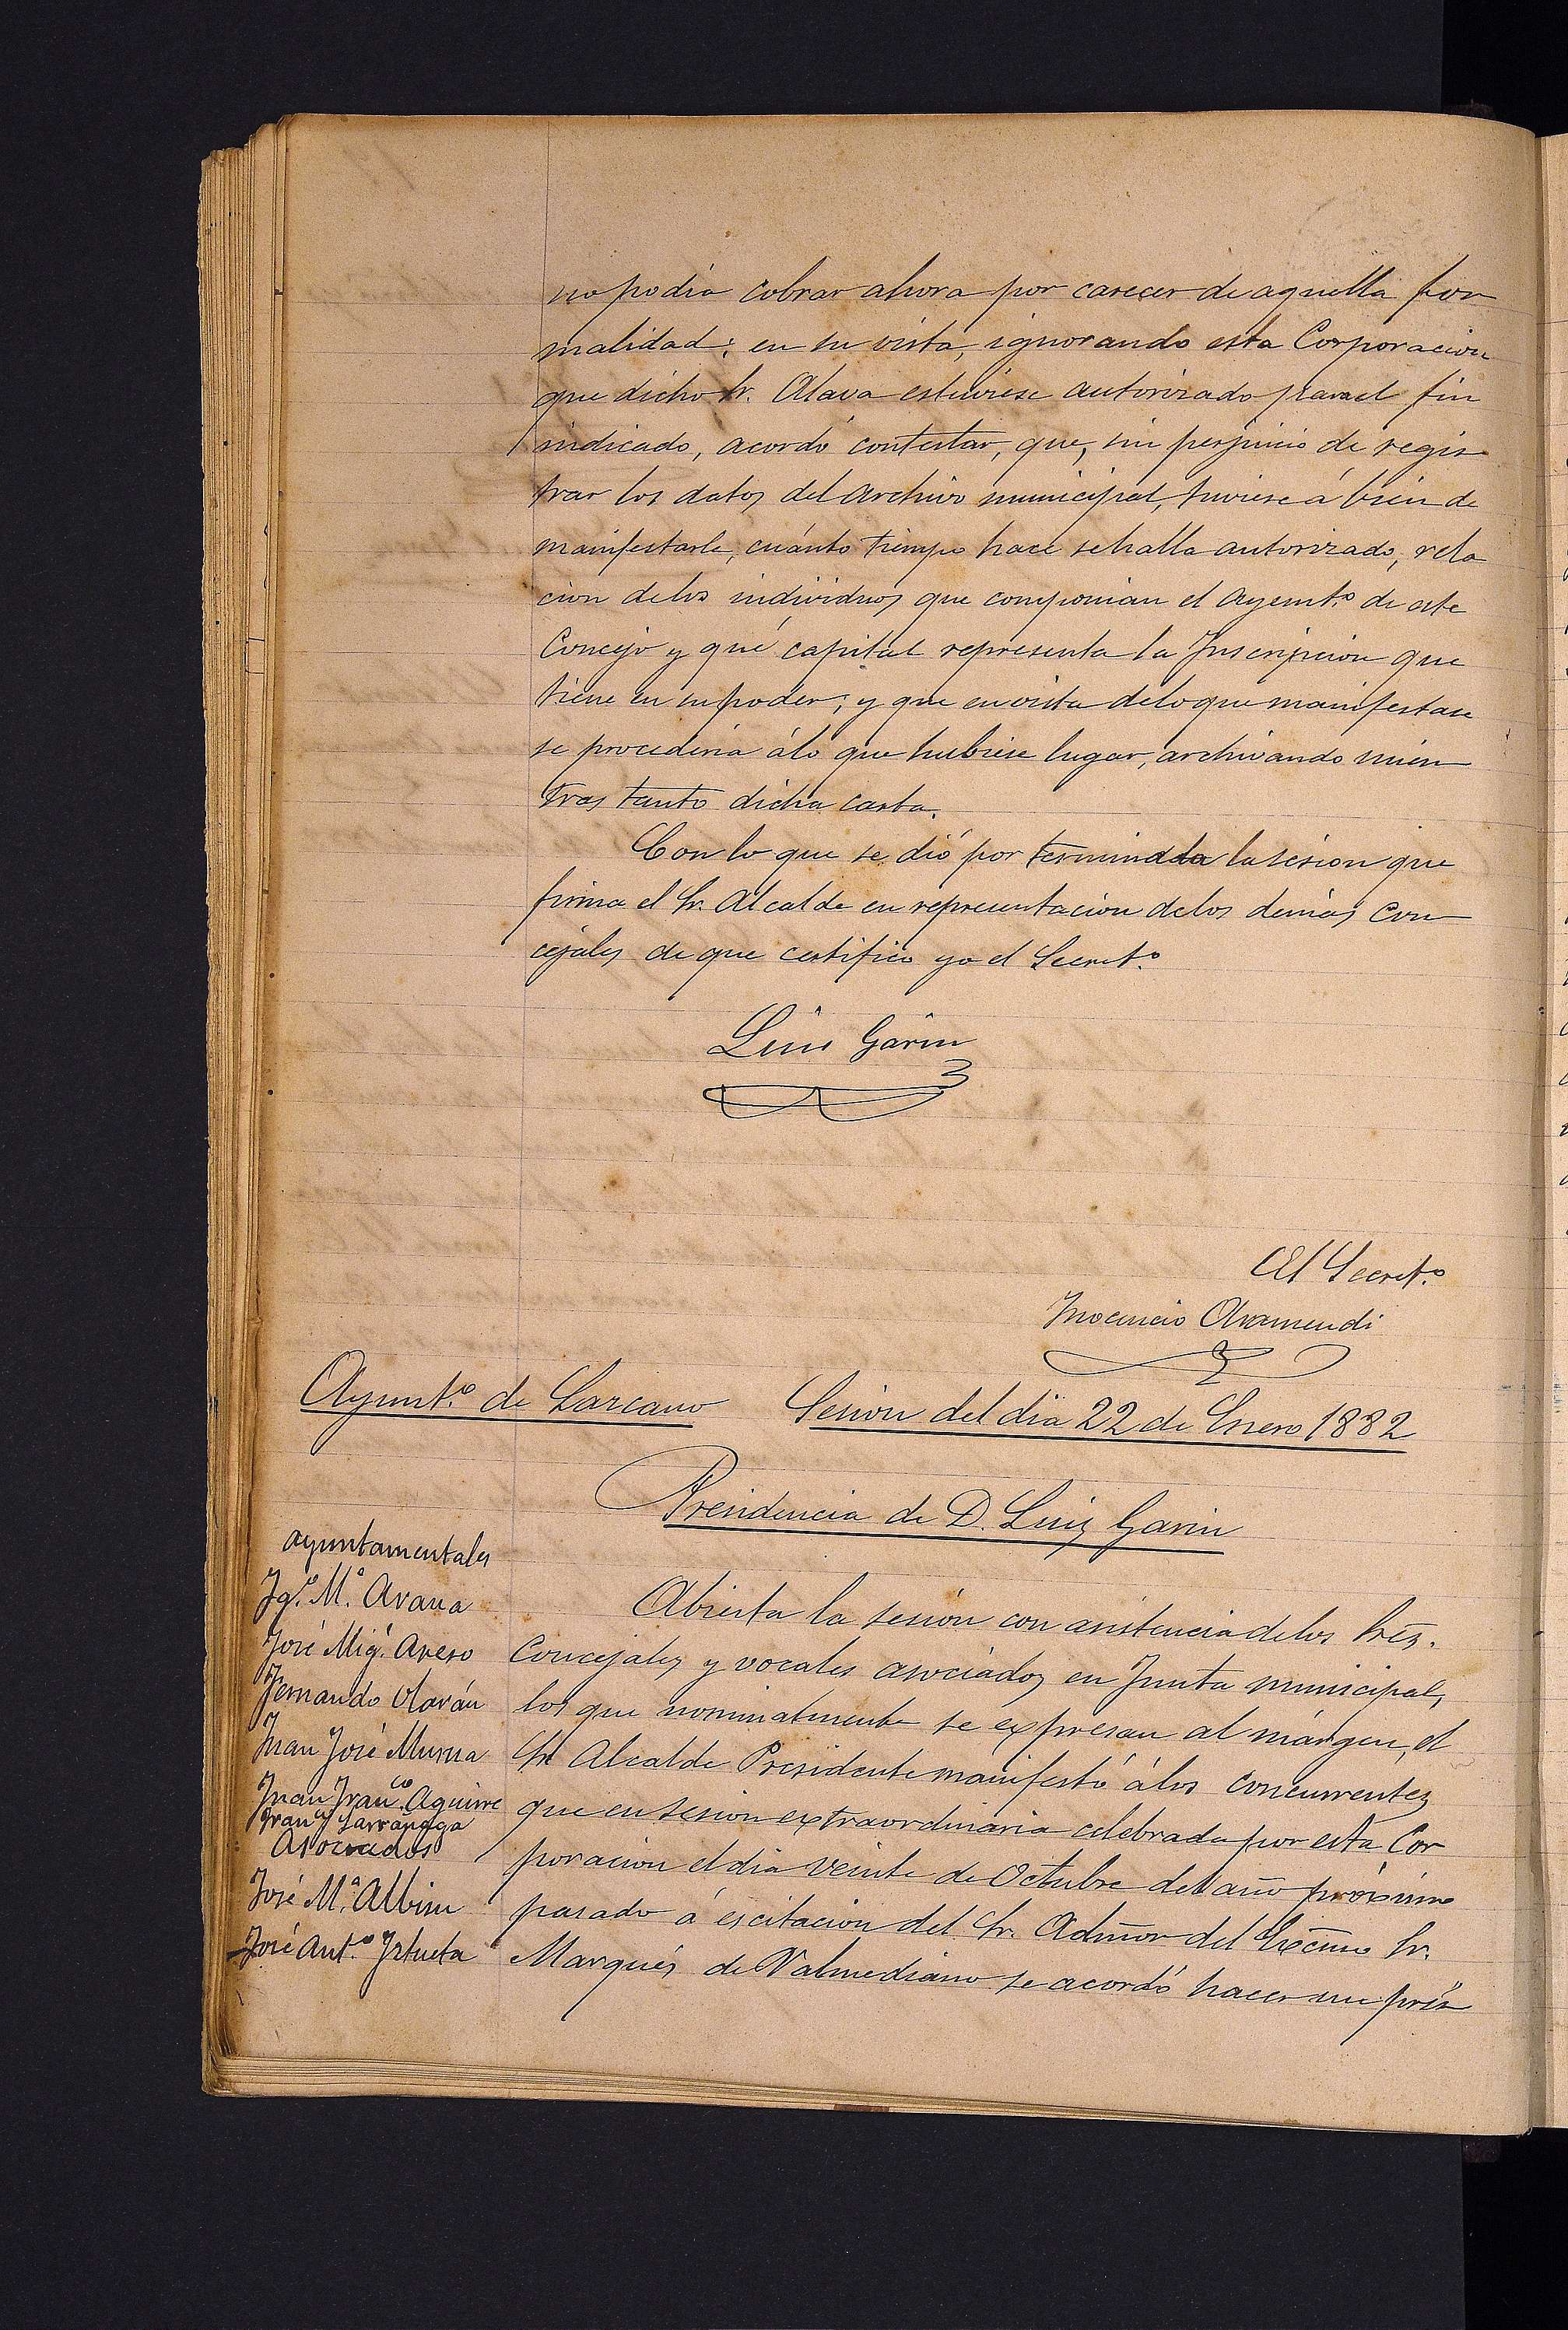 no podia cobrar ahora por carecer de aquella for
malidad; en su vista, ignorando esta Corporacion
que dicho Sr. Alava estuviese autorizado para el fin
indicado, acordó contestar, que, sin perjuicio de regis
trar los datos del archivo municipal, tuviese á bien de
manifestarle, cuánto tiempo hace se halla autorizado, rela
cion de los individuos que componian el Ayunt.º de este
Concejo y qué capital representa la Inscripcion que
tiene en su poder; y que en vista de lo que manifestase
se procederia á lo que hubiese lugar, archivando mien
tras tanto dicha carta.
Con lo que se dió por terminada la sesion que
firma el Sr. Alcalde en representacion de los demás con
cejales de que certifico yo el Secret.º
Luis Garin
El Secret.º
Inocencio Aramendi
Ayunt.º de Lazcano Sesion del dia 22 de Enero 1882
Presidencia de D. Luis Garin
ayuntamentales
Ig.º M.ª Arana
José Mig.l
Fernando
Juan José Murua
Juan Fran.co Aguirre
Fran.co Larrañaga
Asociados
José M.ª Albisu
José Ant.º Iztueta
Abierta la sesión con asistencia de los Sres.
Concejales y vocales asociados en Junta municipal,
los que nominalmente se expresan al márgen, el
Sr. Alcalde Presidente manifestó á los concurrentes
que en sesion extraordinaria celebrada por esta Cor
poracion el dia veinte de Octubre del año próximo
pasado á escitacion del Sr. Admor del Excmo Sr.
Marqués de Valmediano se acordó hacer un prés